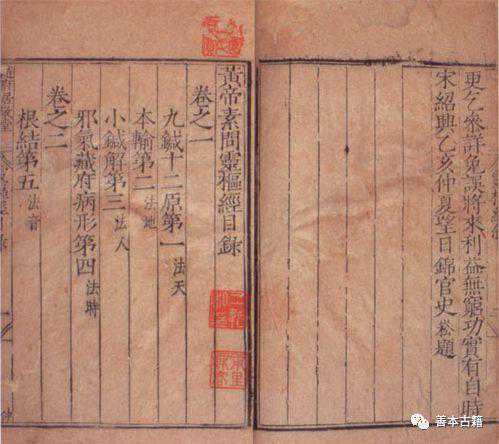 更乞參詳免誤將來利益無窮功實有自時
宋紹興乙亥仲夏望日錦官史崧題
黃帝素問靈樞經目錄
卷之一
九鍼十二原第一 法天
本輸第二 法地
小鍼解第三 法人
邪氣藏府病形第四 法時
卷之二
根結第五 法音
善本古籍